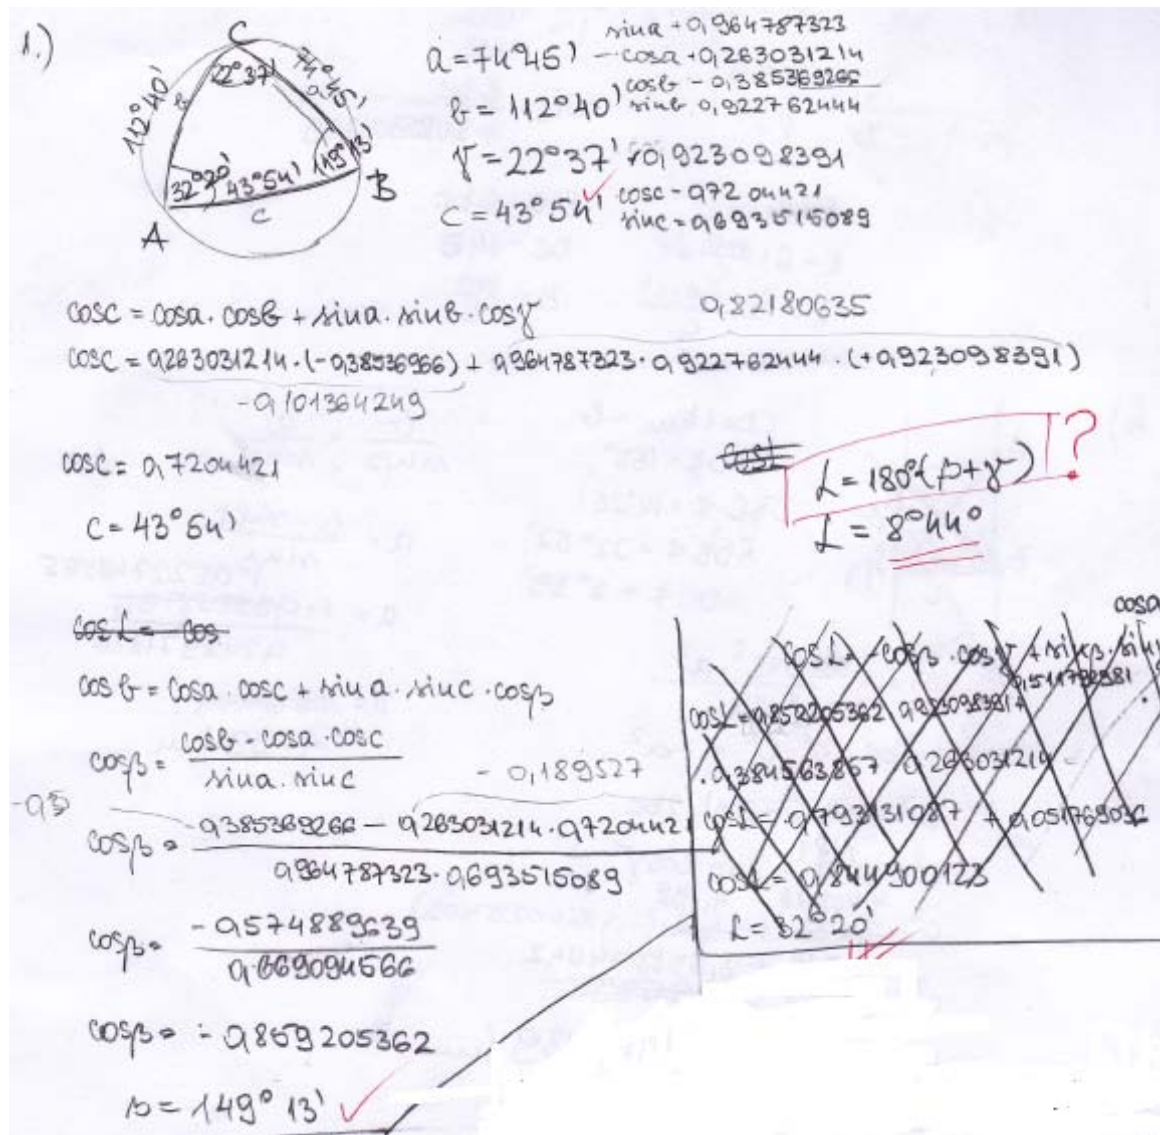 1.)
C
22°37'
74°45'
a
112°40'
b
32°20'
43°54'
149°13'
A
c
B
a = 74°45'
sina + 0,964787323
cosa + 0,263031214
b = 112°40'
cosb - 0,385369266
sinb 0,922762444
γ = 22°37' + 0,923098391
c = 43°54' ✓
cosc - 0,7204421
sinc = 0,693515089
cosc = cosa · cosb + sina · sinb · cosγ
0,82180635
cosc = 0,263031214 · (-0,38536966) + 0,964787323 · 0,922762444 · (+0,923098391)
-0,101364249
cosc = 0,7204421
c = 43°54'
cosL
L = 180°(β+γ) ?
L = 8°44°
cosL = -cos
cosb = cosa · cosc + sina · sinc · cosβ
cosβ = cosb - cosa · cosc
sina · sinc
- 0,189527
cosβ = 0,385369266 - 0,263031214 · 0,7204421
0,964787323 · 0,693515089
cosβ = -0,574889639
0,669094566
cosβ = - 0,859205362
β = 149°13' ✓
cosa
cosL = -cosβ · cosγ + sinβ · sinγ
0,511792981
cosL = 0,859205362 0,923098391 +
· 0,384563857 0,263031214
cosL = 0,793131087 + 0,051769036
cosL = 0,844900123
L = 32°20'